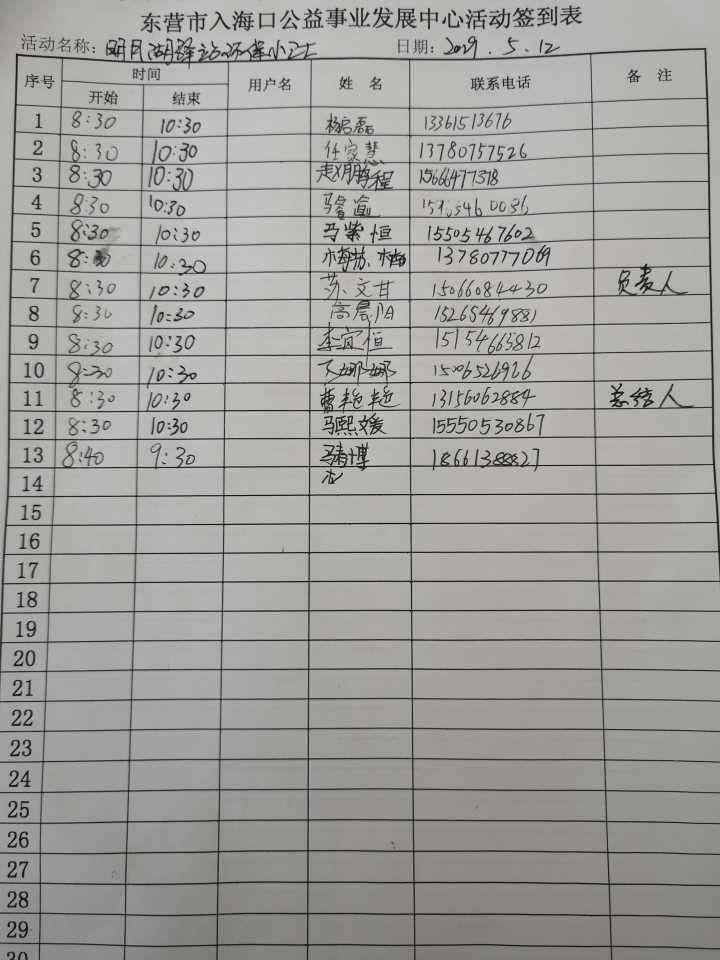 东营市入海口公益事业发展中心活动签到表
活动名称：明月湖驿站环保小卫士 日期：2029.5.12
序号 时间 用户名 姓 名 联系电话 备 注
开始 结束
1 8:30 10:30 杨启磊 13361513676
2 8:30 10:30 任家慧 13780757526
3 8:30 10:30 赵鹏程 15666477378
4 8:30 10:30
5 8:30 10:30 马紫恒 15505467602
6 8:30 10:30 13780777069
7 8:30 10:30 苏文甘 15066084430 负责人
8 8:30 10:30 高晨阳 15265469881
9 8:30 10:30 李宜恒 15154665812
10 8:30 10:30 15006526926
11 8:30 10:30 曹艳艳 13156062884 总结人
12 8:30 10:30 马熙媛 15550530867
13 8:40 9:30 18661388827
14
15
16
17
18
19
20
21
22
23
24
25
26
27
28
29
30